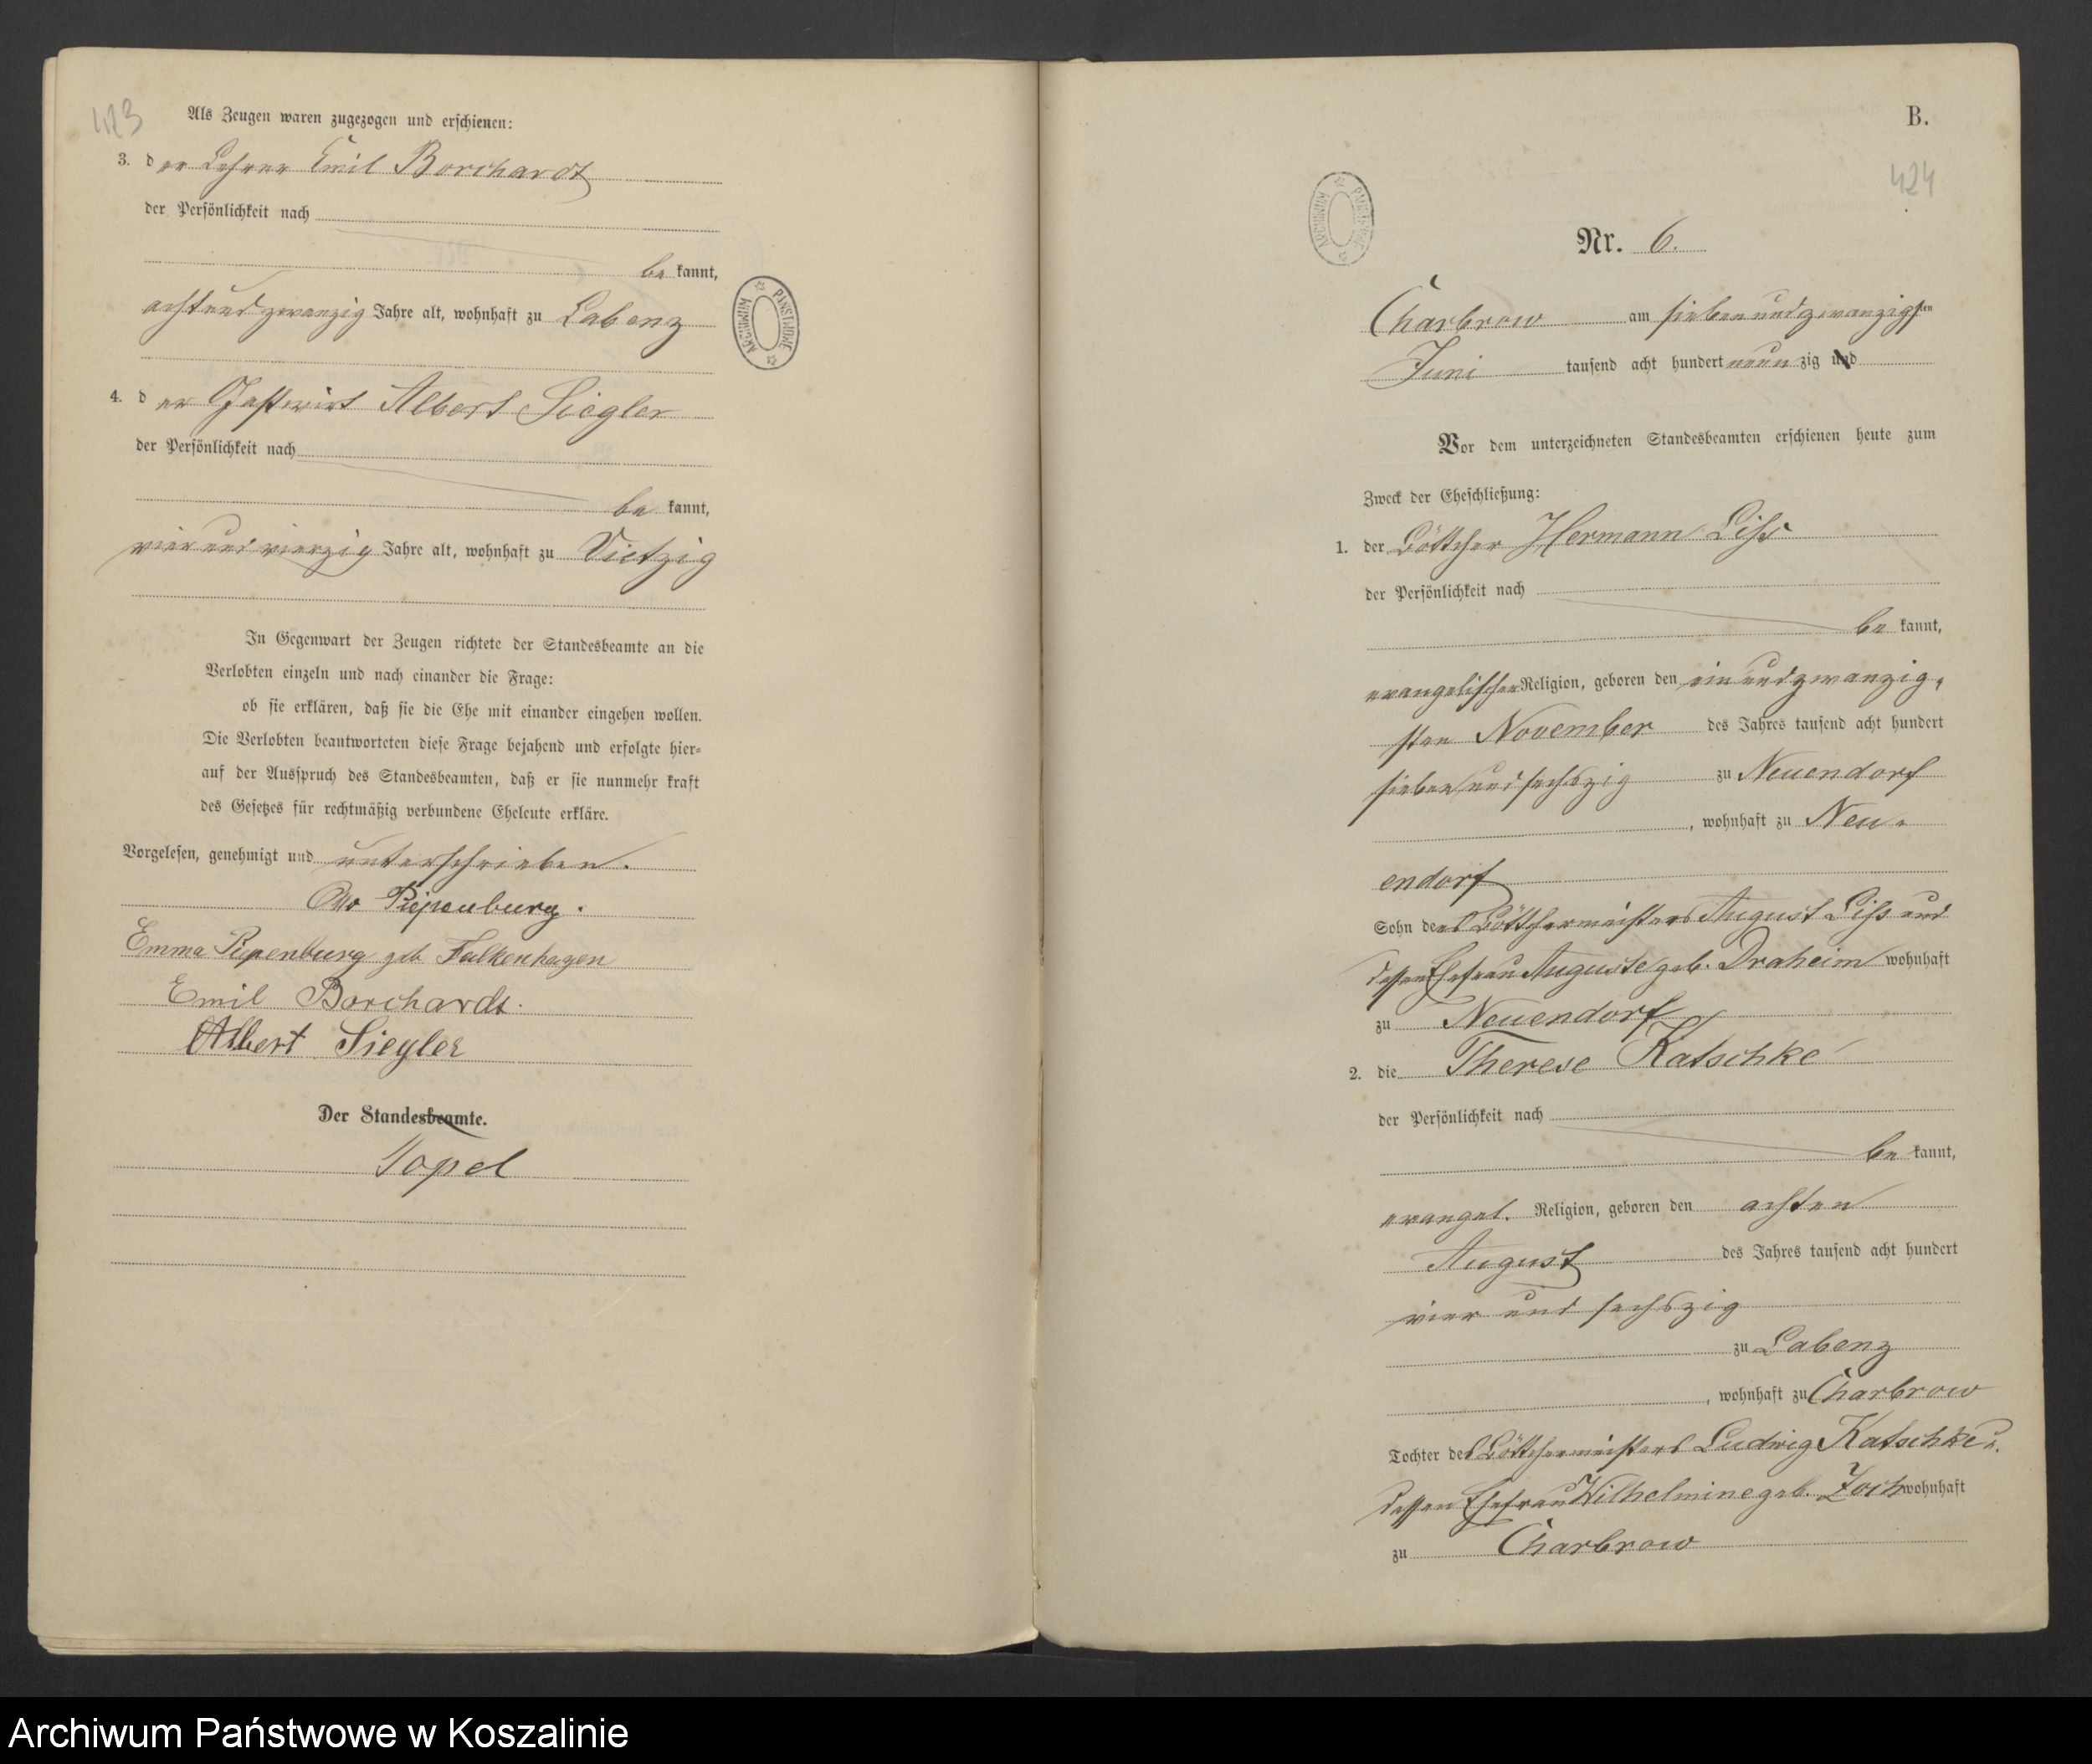 423
Als Zeugen waren zugezogen und erschienen:
3. der Lehrer Emil Borchardt
der Persönlichkeit nach
be kannt,
achtundzwanzig Jahre alt, wohnhaft zu Labenz
ARCHIWUM PAŃSTWOWE
4. der Gastwirt Albert Siegler
der Persönlichkeit nach
be kannt,
vierundvierzig Jahre alt, wohnhaft zu Vietzig
In Gegenwart der Zeugen richtete der Standesbeamte an die
Verlobten einzeln und nach einander die Frage:
ob sie erklären, daß sie die Ehe mit einander eingehen wollen.
Die Verlobten beantworteten diese Frage bejahend und erfolgte hier-
auf der Ausspruch des Standesbeamten, daß er sie nunmehr kraft
des Gesetzes für rechtmäßig verbundene Eheleute erkläre.
Vorgelesen, genehmigt und unterschrieben.
Otto Piepenburg.
Emma Piepenburg geb Falkenhagen
Emil Borchardt.
Albert Siegler
Der Standesbeamte.
Topel
B.
424
ARCHIWUM PAŃSTWOWE
Nr. 6.
Charbrow am siebenundzwanzigsten
Juni tausend acht hundert neunzig und
Vor dem unterzeichneten Standesbeamten erschienen heute zum
Zweck der Eheschließung:
1. der Böttcher Hermann Liss
der Persönlichkeit nach
be kannt,
evangelischer Religion, geboren den einundzwanzig-
sten November des Jahres tausend acht hundert
siebenundsechszig zu Neuendorf
, wohnhaft zu Neu-
endorf
Sohn des Böttchermeisters August Liss und
dessen Ehefrau Auguste geb. Draheim wohnhaft
zu Neuendorf
2. die Therese Katschke
der Persönlichkeit nach
be kannt,
evangel. Religion, geboren den achten
August des Jahres tausend acht hundert
vier und sechszig
zu Labenz
, wohnhaft zu Charbrow
Tochter des Böttchermeisters Ludwig Katschke u.
dessen Ehefrau Wilhelmine geb. Zoch wohnhaft
zu Charbrow
Archiwum Państwowe w Koszalinie